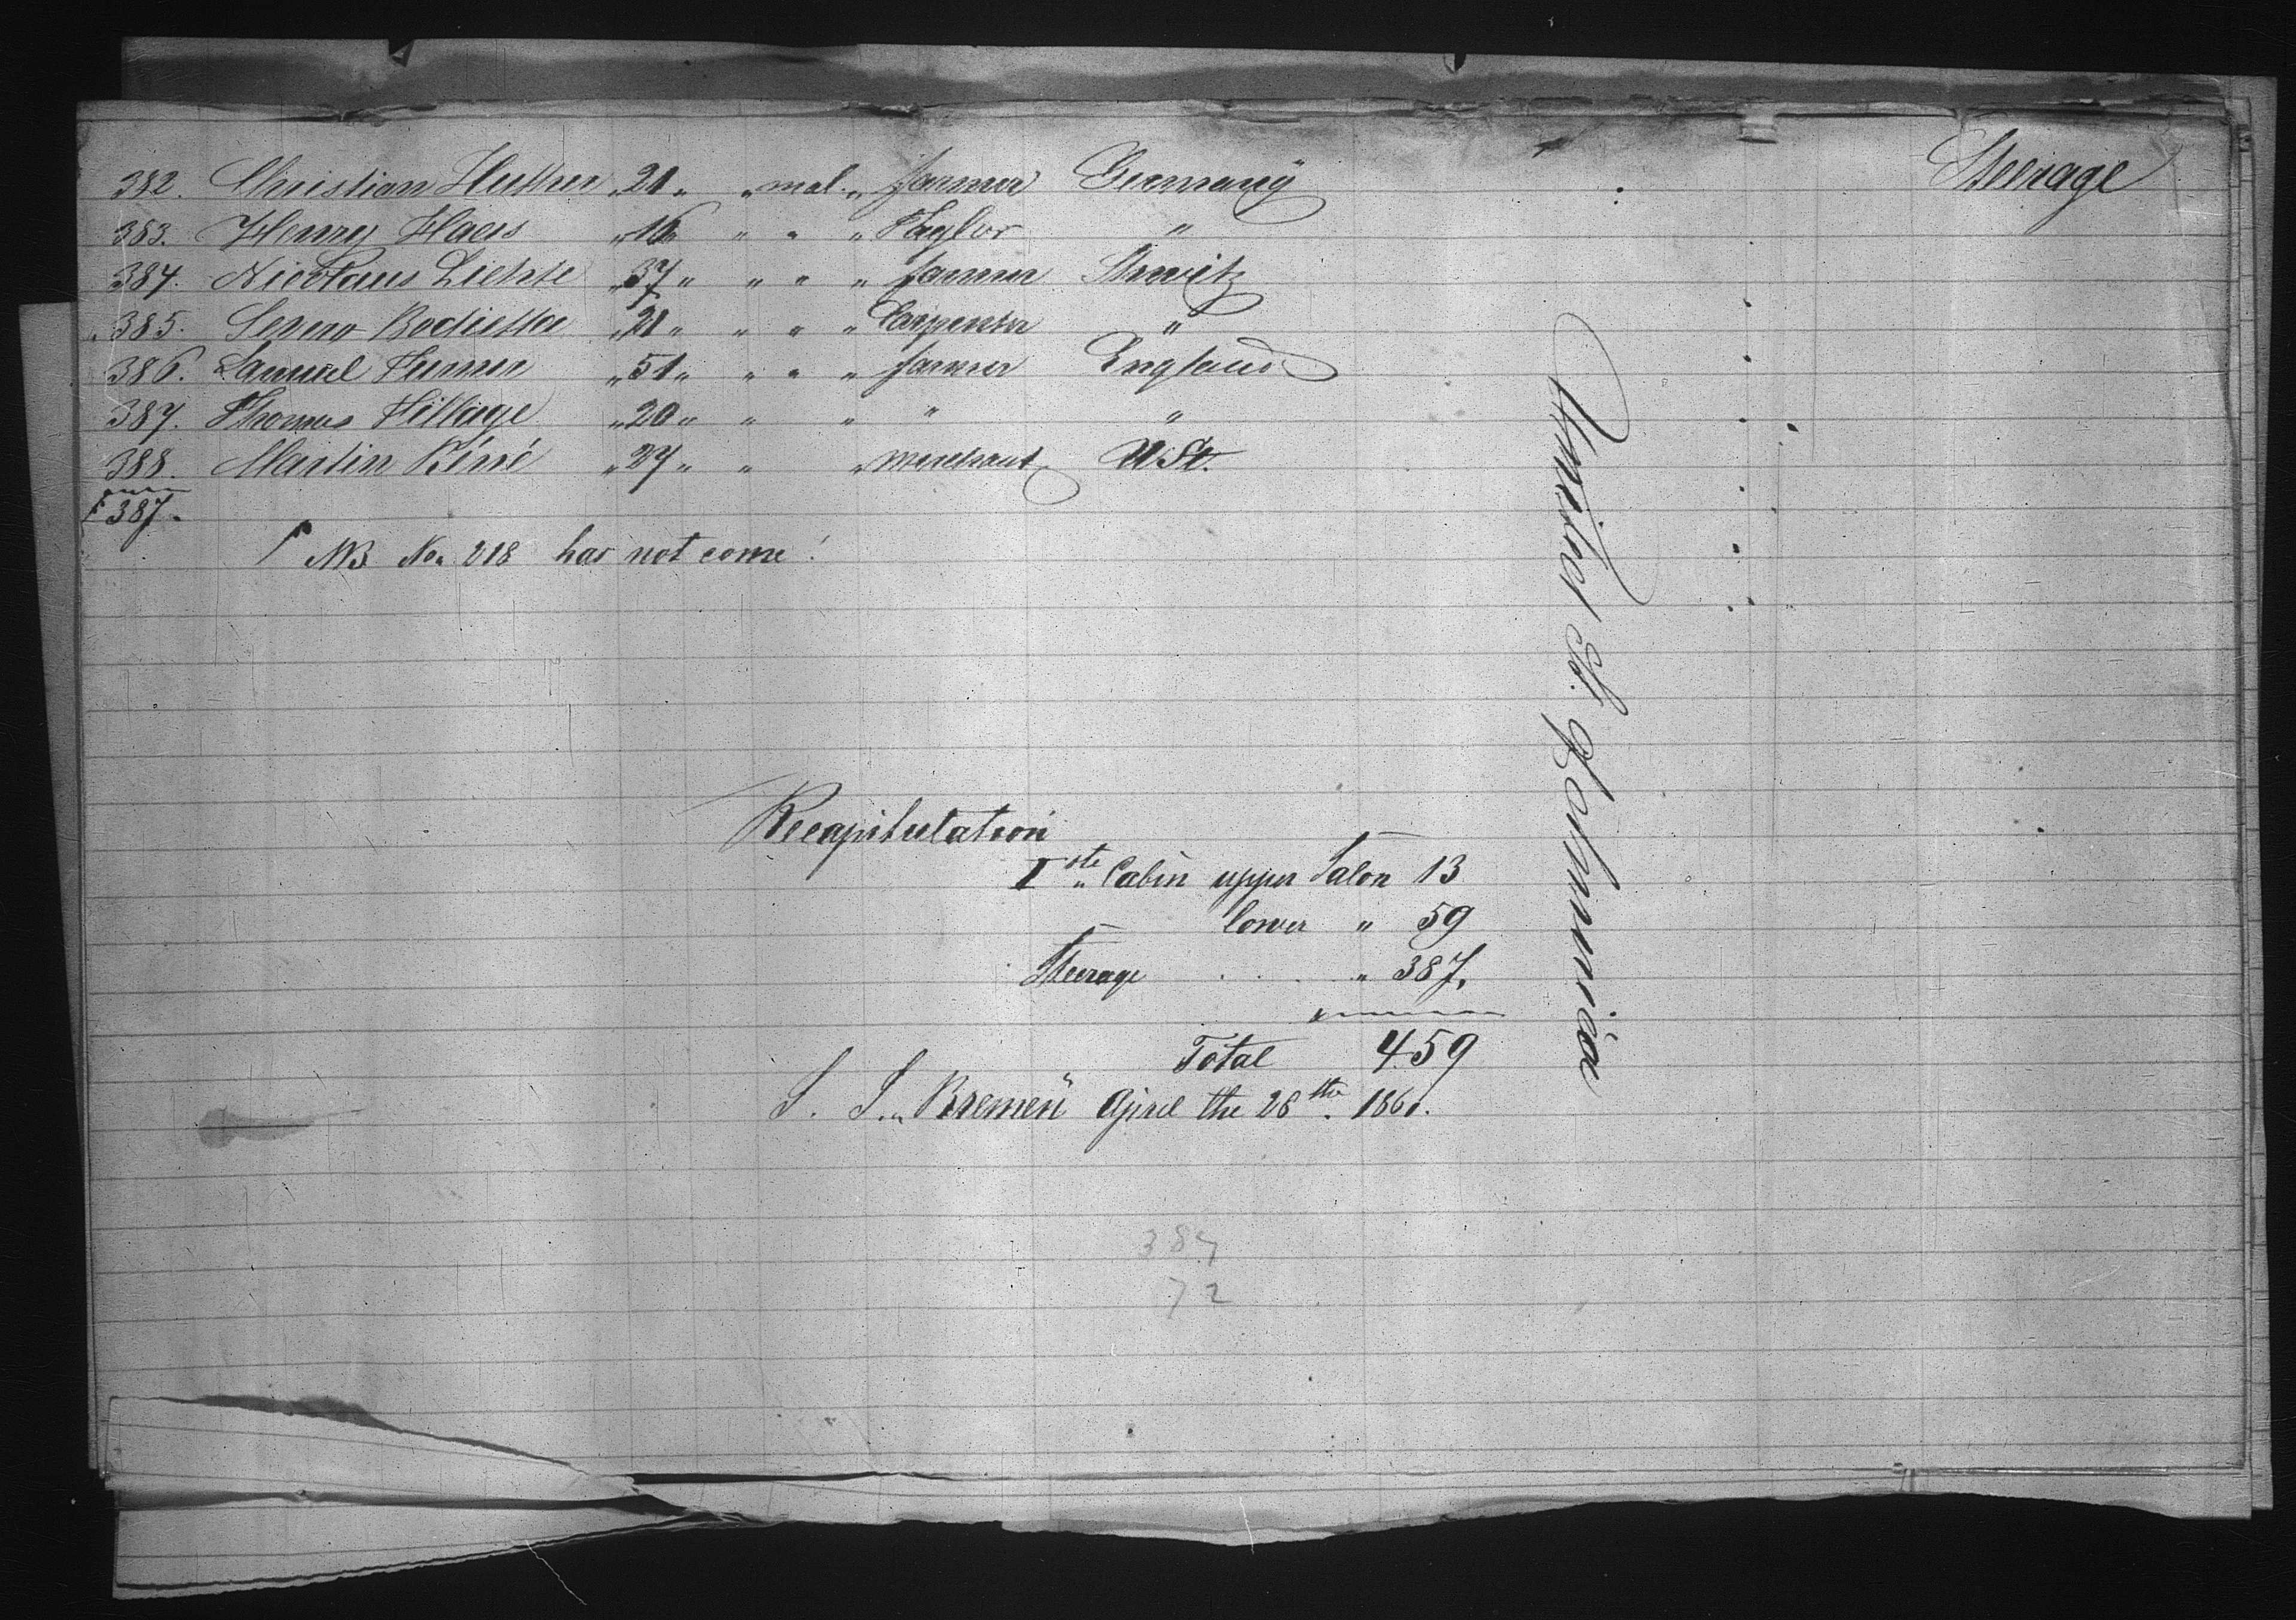 Steerage
382. Christian Huther „ 21 „ „ mal. „ farmer Germany
383. Henry Haas „ 16 „ „ „ Taylor "
384. Nicolaus Liechte „ 37 „ „ „ „ farmer Schweitz
385. Severo Bodietta „ 21 „ „ „ „ Carpenter "
386. Samuel Turner „ 51 „ „ „ „ farmer England
387. Thomas Hillage „ 20 „ „ „ " "
388. Martin „ 27 „ „ „ merchant U St.
387.
NB. No. 218 has not come!
United St. of America
Recapitulation
Iste Cabin upper Salon 13
lower " 59
Steerage . . . " 387.
Total 459
S. S. „Bremen" April the 28th 186
387
72